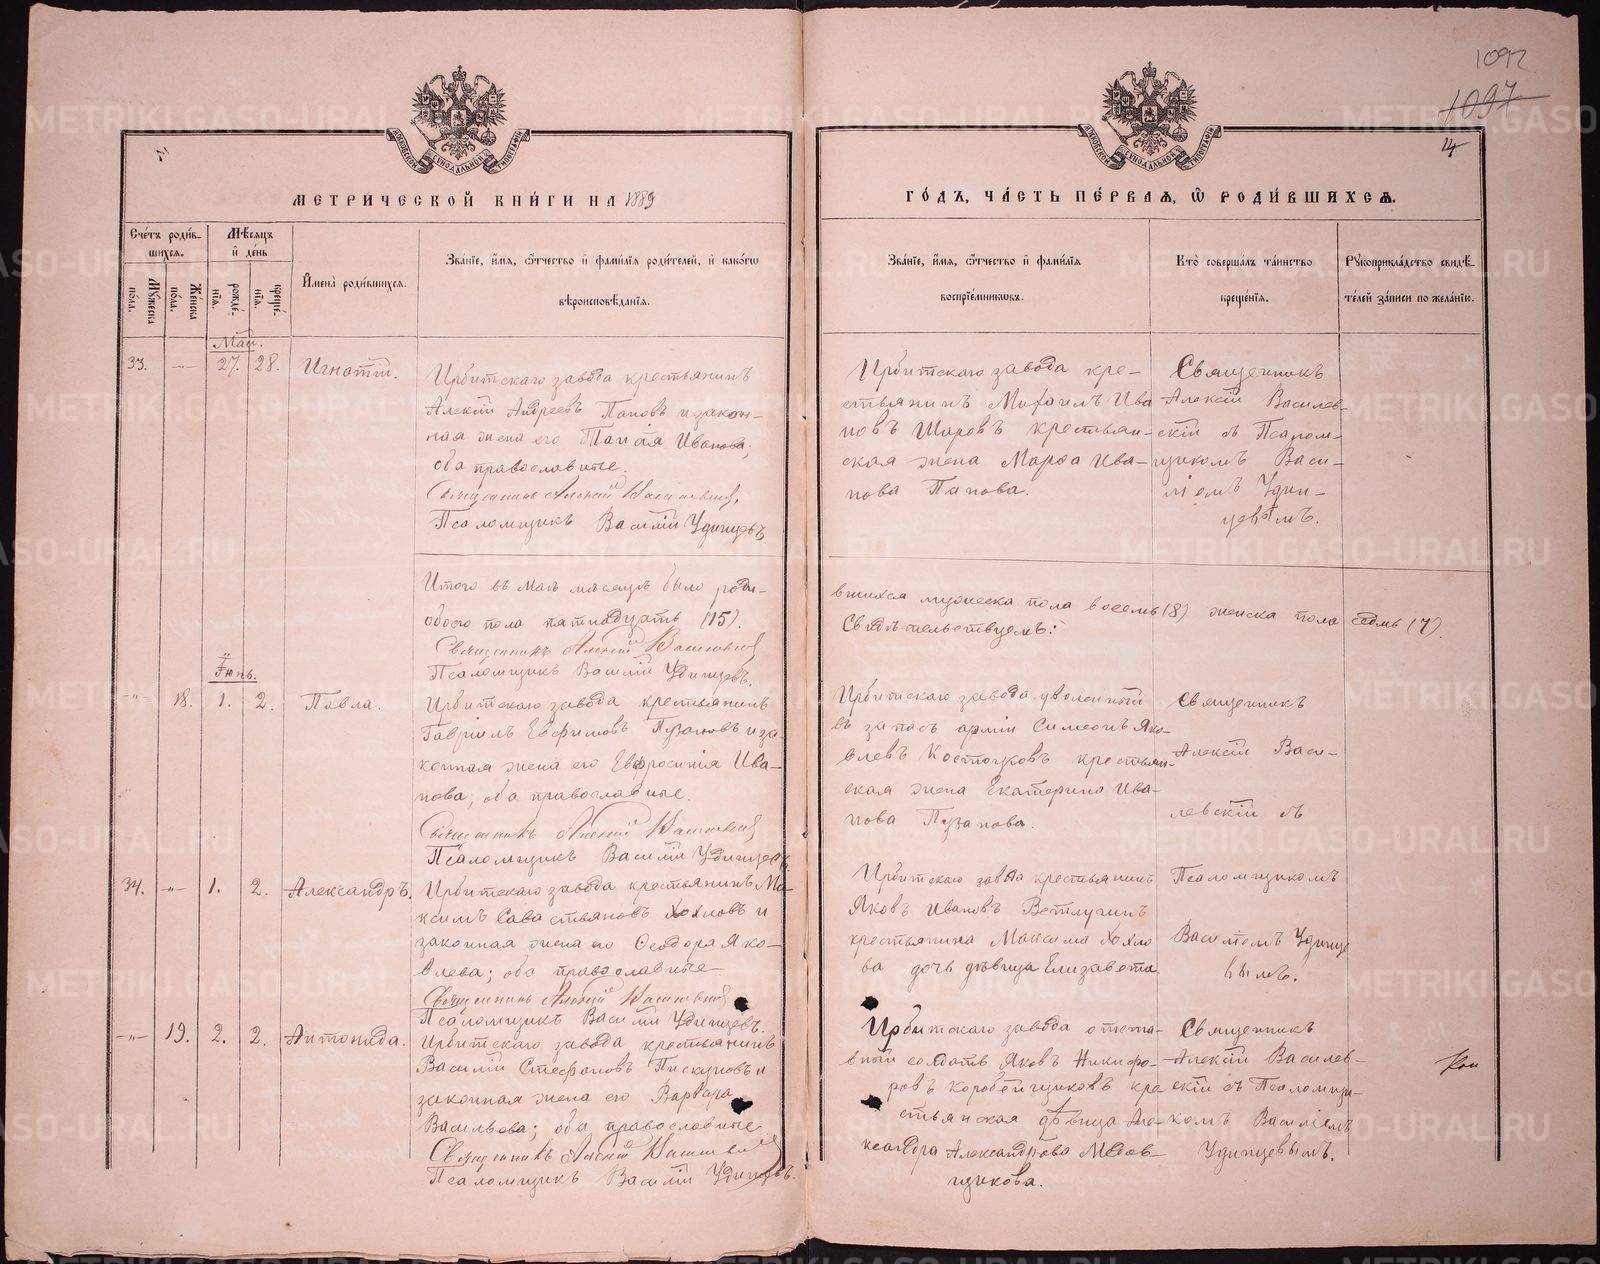 1092
1097
14
МЕТРИ́ЧЕСКОЙ КНИ́ГИ НА 1889
ГО́ДЪ, ЧА́СТЬ ПЕ́РВАѦ, Ѡ҆ РОДИ́ВШИХСѦ.
Сче́тъ роди́в-
шихсѧ.
Му́жеска
по́ла.
Же́нска
по́ла.
Мѣ́сѧцъ
и҆ де́нь
рожде́-
нїѧ.
креще́-
нїѧ.
И҆мена̀ роди́вшихсѧ.
Зва́нїе, и҆́мѧ, ѻ҆́тчество и҆ фами́лїѧ роди́телей, и҆ како́гѡ
вѣроисповѣ́данїѧ.
Зва́нїе, и҆́мѧ, ѻ҆́тчество и҆ фами́лїѧ
воспрїе́мникѡвъ.
Кто̀ соверша́лъ та́инство
креще́нїѧ.
Рꙋкоприкла́дство свидѣ́-
телей за́писи по жела́нїю.
Май.
33. —„— 27. 28. Игнатій.
Ирбитскаго завода крестьянинъ
Алексій Андреевъ Паповъ и закон-
ная жена его Таисія Иванова;
оба православные.
Священникъ Алексій Василевскій,
Псаломщикъ Василій Удинцевъ.
Ирбитскаго завода кре-
стьянинъ Михаилъ Ива
новъ Шаровъ крестьян-
ская жена Марѳа Ива-
нова Папова.
Священникъ
Алексій Василев-
скій съ Псалом-
щикомъ Васи-
ліемъ Удин-
цевымъ.
Итого въ маѣ мѣсяцѣ было роди-
вшихся мужеска пола восемь (8) женска пола седмь (7).
обоего пола пятнадцать (15).
Свидѣтельствуемъ:
Священникъ Алексій Василевскій
Псаломщикъ Василій Удинцевъ.
Іюнь.
—„— 18. 1. 2. Павла.
Ирбитскаго завода крестьянинъ
Гавріилъ Евфимовъ Пузановъ и за
конная жена его Евфросинія Ива-
нова; оба православные.
Священникъ Алексій Василевскій
Псаломщикъ Василій Удинцевъ.
Ирбитскаго завода уволенный
въ запасъ арміи Симеонъ Яко-
влевъ Косточковъ крестьян-
ская жена Екатерина Ива-
нова Пузанова.
Священникъ
Алексій Васи-
левскій съ
34. —„— 1. 2. Александръ.
Ирбитскаго завода крестьянинъ Ма-
ксимъ Савастьяновъ Хохловъ и
законная жена его Ѳеодора Яко-
влева; оба православные.
Священникъ Алексій Василевскій
Псаломщикъ Василій Удинцевъ.
Ирбитскаго завода крестьянинъ
Яковъ Ивановъ Ветлугинъ
крестьянина Максима Хохло
ва дочь дѣвица Елизавета
Псаломщикомъ
Василіемъ Удинце
вымъ.
—„— 19. 2. 2. Антонида.
Ирбитскаго завода крестьянинъ
Василій Стефановъ Пискуновъ и
законная жена его Варвара
Васильева; оба православные
Священникъ Алексій Василевскій
Псаломщикъ Василій Удинцевъ.
Ирбитскаго завода отста-
вный солдатъ Яковъ Никифо-
ровъ Коробейщиковъ кре
стьянская дѣвица Але-
ксандра Александрова Медов-
щикова.
Священникъ
Алексій Василев-
скій съ Псаломщи-
комъ Василіемъ
Удинцевымъ.
METRIKI.GASO-URAL.RU